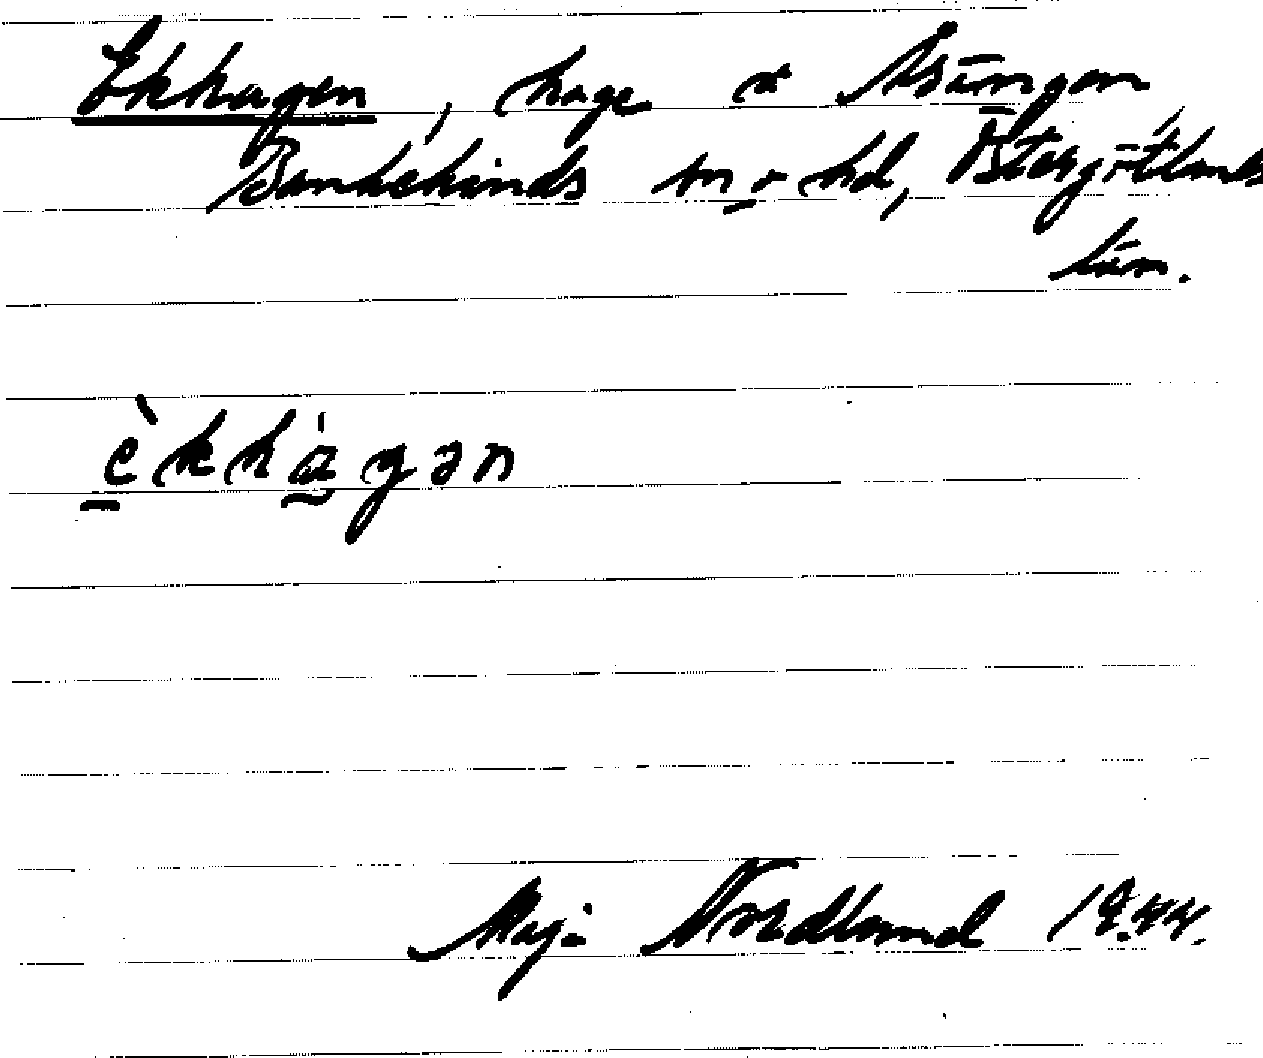 Ekhagen, hage å Åsängen,
Bankekinds sn o hd, Östergötlands
län.
èkhàgən
Maja Nordlund 1944.